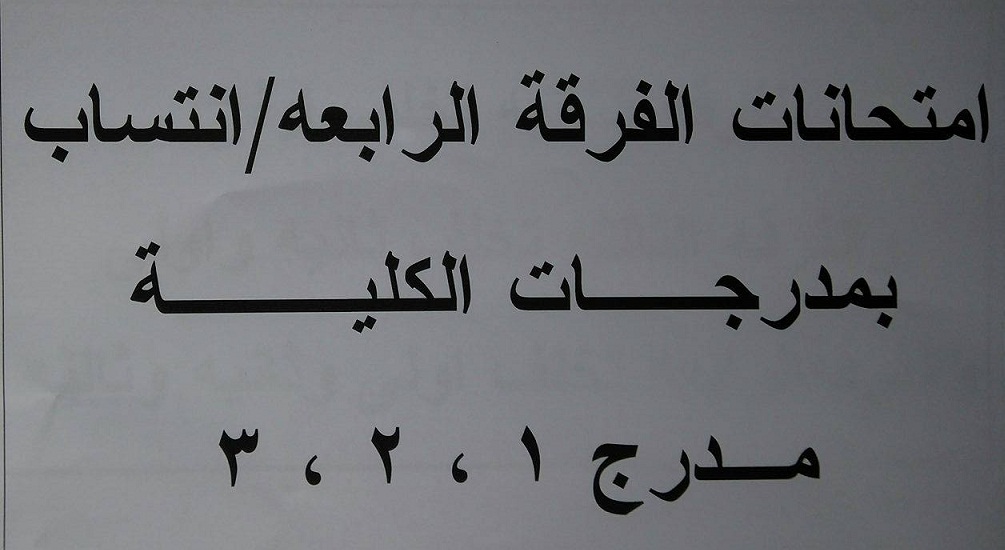 امتحانات الفرقة الرابعه/انتساب
بمدرجـــــات الكليــــــــة
مــدرج ١ ، ٢ ، ٣